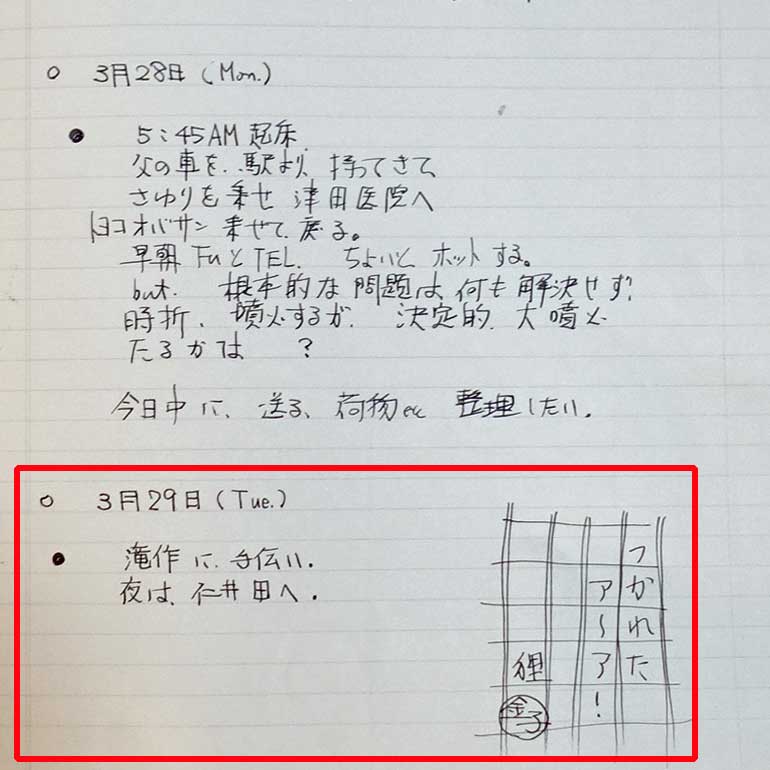 ○ 3月28日(Mon.)
● 5:45AM 起床.
父の車を、駅より、持ってきて、
さゆりを乗せ 津田医院へ
トヨコオバサン 乗せて、戻る。
早朝 FuとTEL. ちょいと ホットする。
but. 根本的な問題は、何も解決せず、
時折、噴火するが、決定的、大噴火
たるかは ?
今日中に、送る、荷物etc 整理したい。
○ 3月29日(Tue.)
● 滝作に、手伝い.
夜は、仁井田へ.
つかれた
ア~ア!
狸
金子